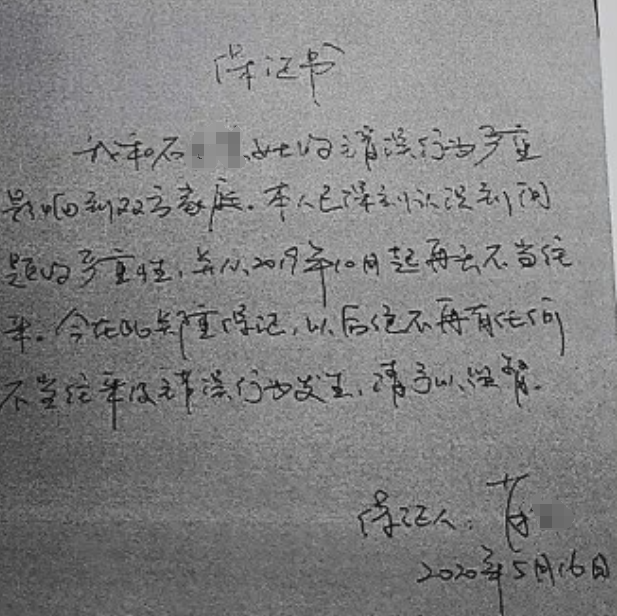 保证书
我和石 女士的错误行为严重
影响到双方家庭。本人已深刻认识到问
题的严重性,并从2019年10月起再无不当往
来。今在此郑重保证,以后绝不再有任何
不当往来及错误行为发生,请予以监督。
保证人:
2020年5月16日